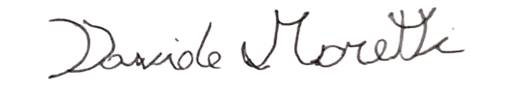 Davide Moretti